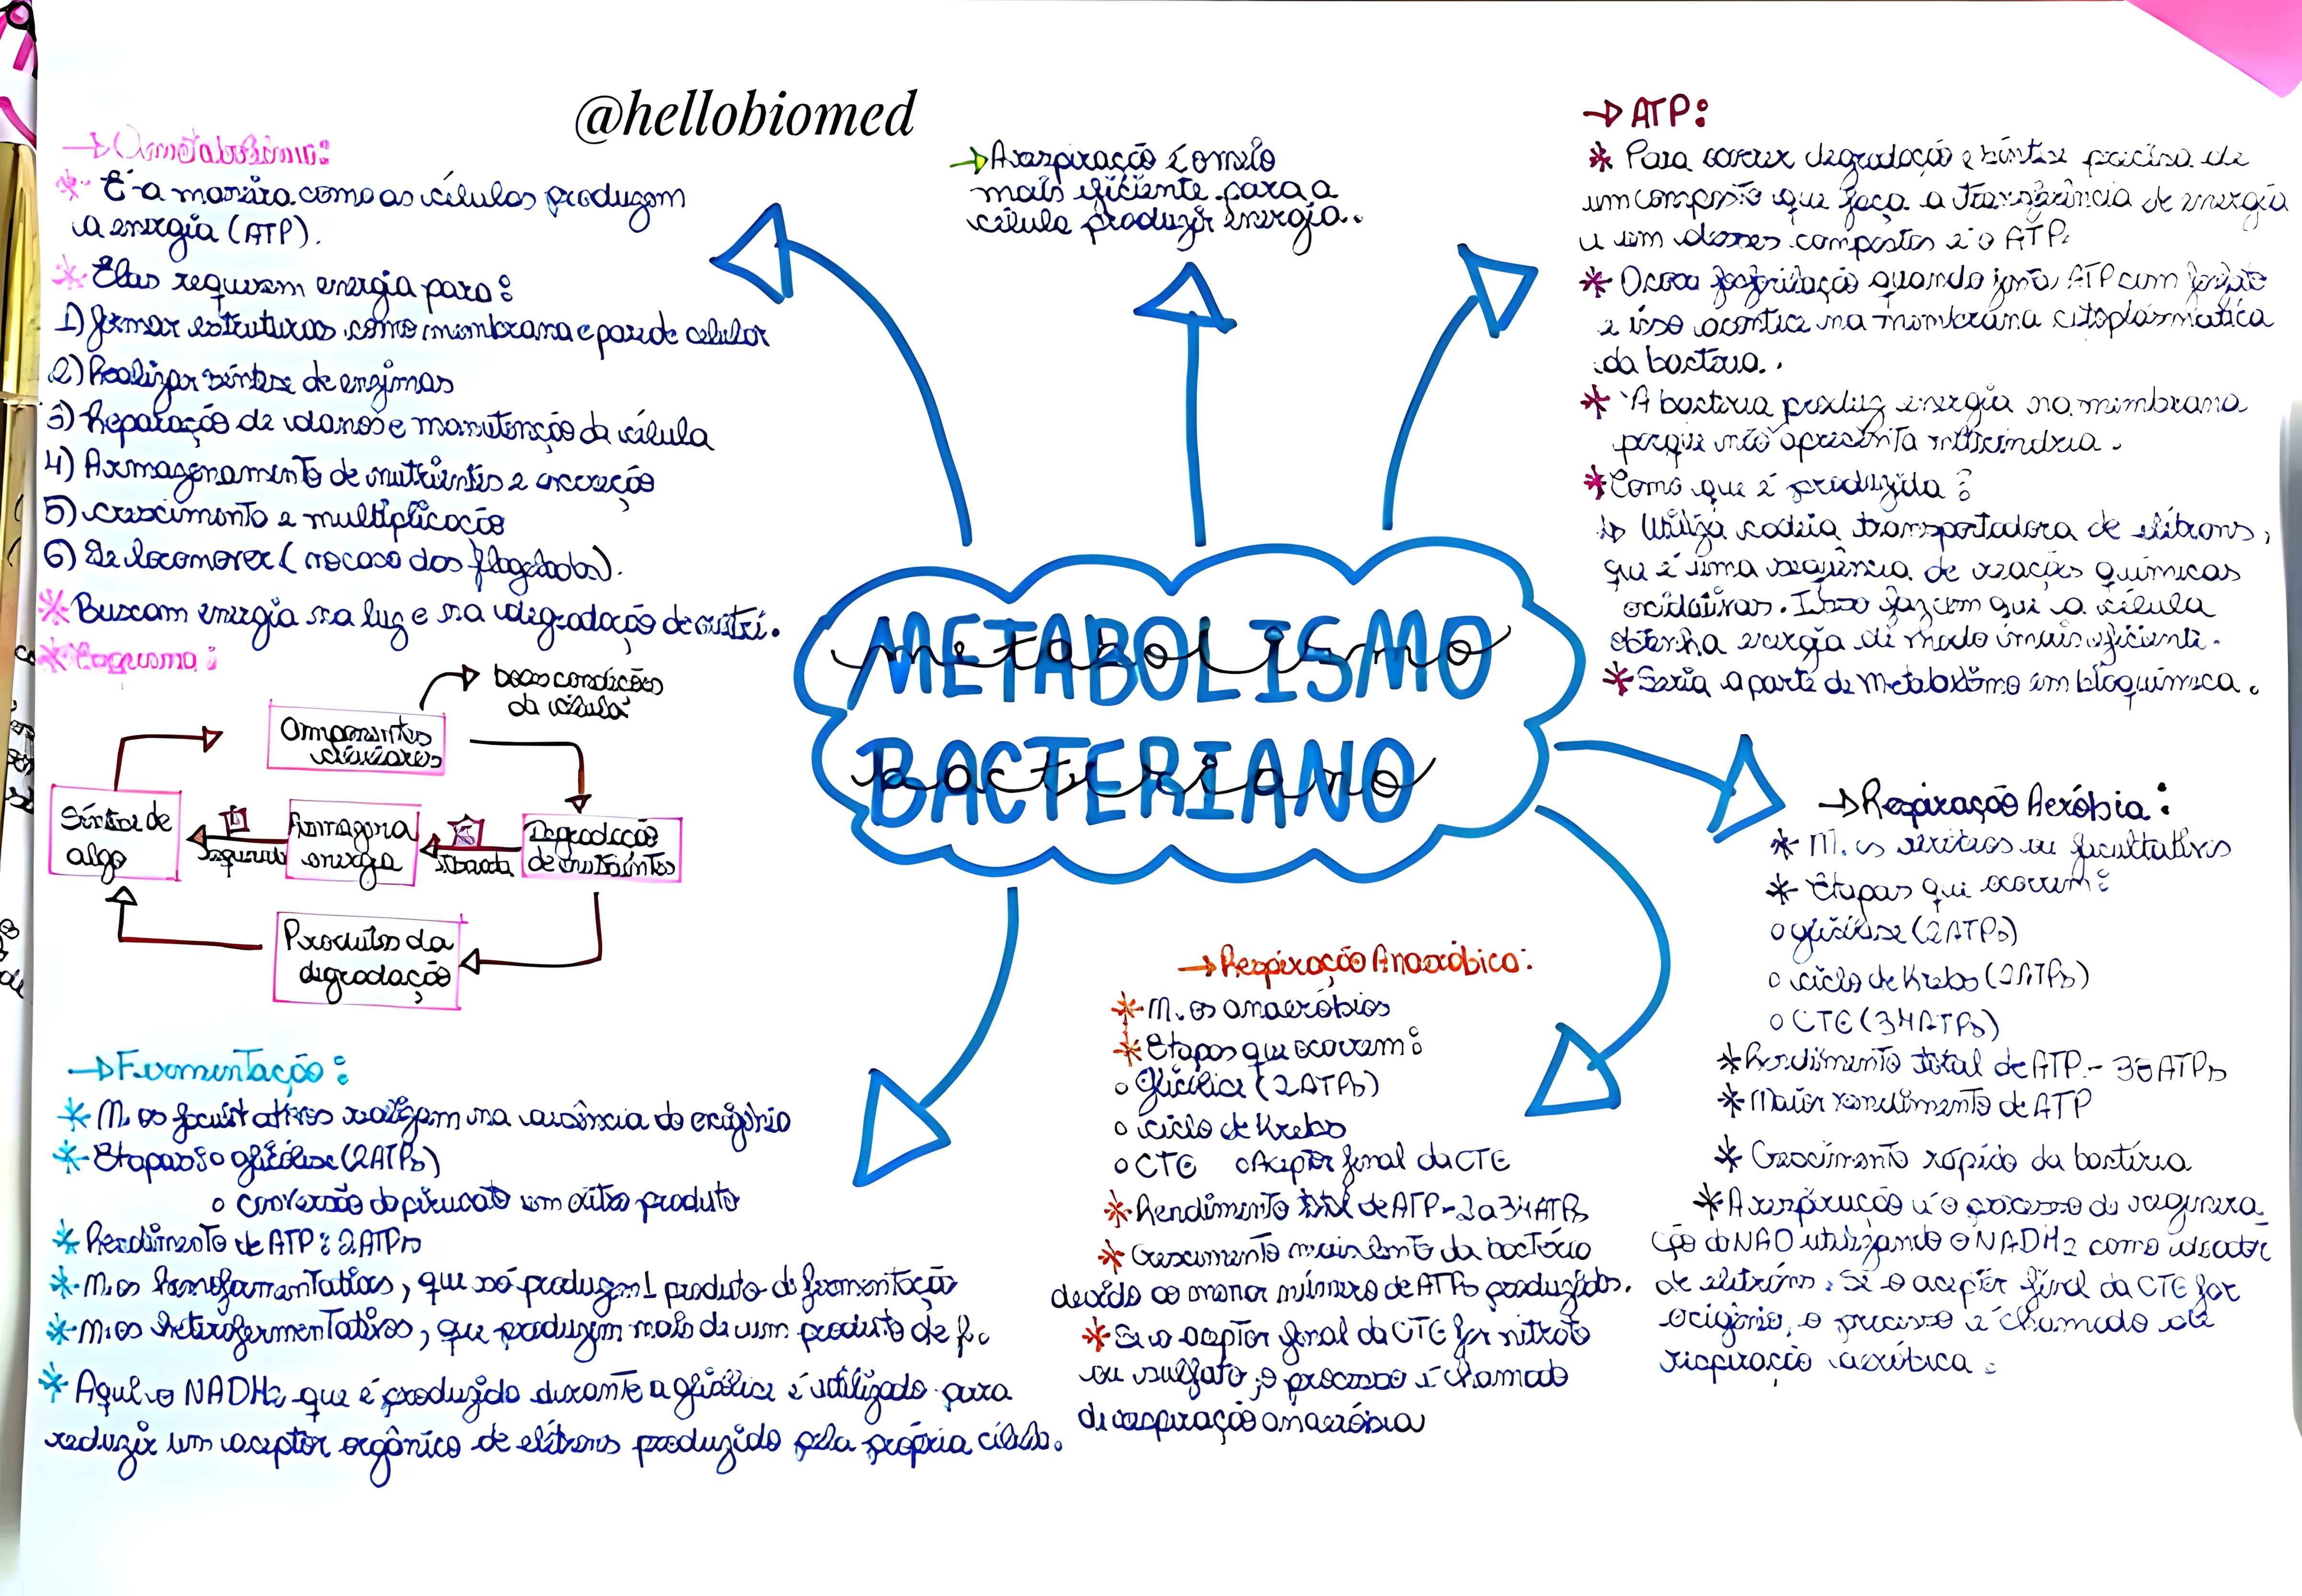 @hellobiomed
→O metabolismo:
* É a maneira como as células produzem
a energia (ATP).
* Elas requerem energia para:
1) formar estruturas como membrana e parede celular
2) Realizar síntese de enzimas
3) Reparação de danos e manutenção da célula
4) Armazenamento de nutrientes e excreção
5) crescimento e multiplicação
6) Se locomover (no caso dos flagelados).
* Buscam energia na luz e na degradação de nutri.
* Esquema:
boas condições
da célula
Componentes
celulares
Síntese de
algo
E
requerida
Armazena
energia
E
liberada
Degradação
de nutrientes
Produtos da
degradação
→A respiração é o meio
mais eficiente para a
célula produzir energia.
→ATP:
* Para ocorrer degradação e síntese precisa de
um composto que faça a transferência de energia
e um desses compostos é o ATP.
* Ocorre fosforilação quando junta ATP com fosfato
e isso acontece na membrana citoplasmática
da bactéria.
* A bactéria produz energia na membrana
porque não apresenta mitocôndria.
* Como que é produzida?
↳ Utiliza cadeia transportadora de elétrons,
que é uma sequência de reações químicas
oxidativas. Isso faz com que a célula
obtenha energia de modo mais eficiente.
* Seria a parte de Metabolismo em bioquímica.
METABOLISMO
metabolismo
BACTERIANO
bacteriano
→Respiração Aeróbia:
* M.os aeróbios ou facultativos
* Etapas que ocorrem:
o glicólise (2ATPs)
o ciclo de Krebs (2ATPs)
o CTE (34ATPs)
* Rendimento total de ATP - 38ATPs
* Maior rendimento de ATP
* Crescimento rápido da bactéria
* A respiração é o processo de regenera
ção do NAD utilizando o NADH2 como doador
de elétrons. Se o aceptor final da CTE for
oxigênio, o processo é chamado de
respiração aeróbica.
→Respiração Anaeróbica:
* M.os anaeróbios
* Etapas que ocorrem:
o Glicólise (2ATPs)
o ciclo de Krebs
o CTE o Aceptor final da CTE
* Rendimento total de ATP - 2 a 34ATPs
* Crescimento mais lento da bactéria
devido ao menor número de ATPs produzidos.
* Se o aceptor final da CTE for nitrato
ou sulfato, o processo é chamado
de respiração anaeróbia
→Fermentação:
* M.os facultativos realizam na ausência do oxigênio
* Etapas: o glicólise (2ATPs)
o conversão do piruvato em outro produto
* Rendimento de ATP: 2ATPs
* M.os homofermentativos, que só produzem 1 produto de fermentação
* M.os heterofermentativos, que produzem mais de um produto de f.
* Aqui o NADH2 que é produzido durante a glicólise é utilizado para
reduzir um aceptor orgânico de elétrons produzido pela própria célula.